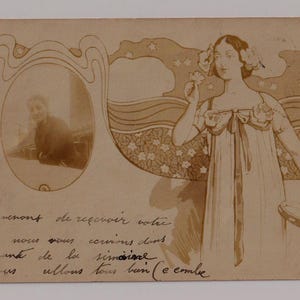 venons de recevoir votre
nous vous ecrivons dans
de la
vous allons tous bien (e combe